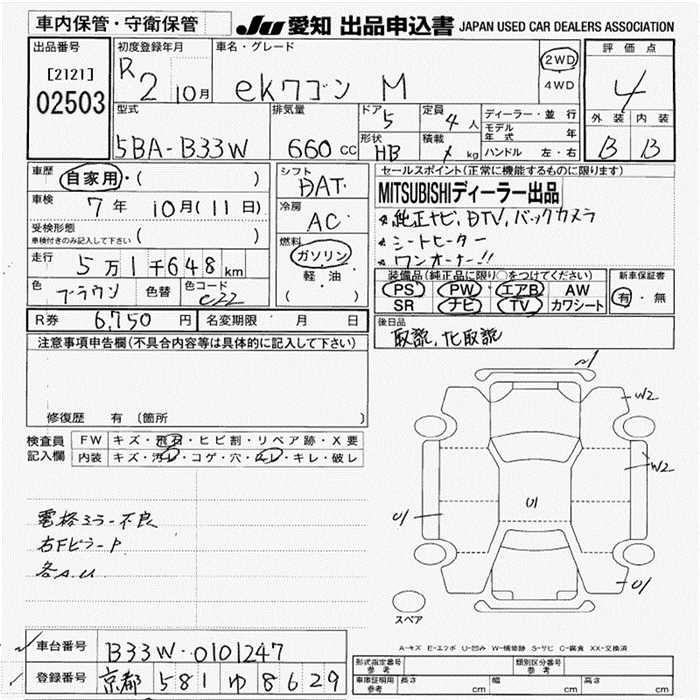 車内保管・守衛保管
JU 愛知 出品申込書 JAPAN USED CAR DEALERS ASSOCIATION
出品番号 [2121] 02503
初度登録年月 R2 10月
車名・グレード ekワゴン M
2WD
4WD
評価点 4
外装 内装
B B
型式 5BA-B33W
排気量 660 cc
ドア 5
定員 4人
形状 HB
積載 kg
ディーラー・並行
モデル年式 年
ハンドル 左・右
車歴 自家用・( )
車検 7年 10月(11日)
受検形態
車検付きのみ記入して下さい ( )
走行 5万1千648km
色 ブラウン 色替 色コード C22
シフト DAT
冷房 AC
燃料 ガソリン・軽・油・( )
セールスポイント(正常に機能するものに限ります)
MITSUBISHIディーラー出品
純正ナビ,DTV,バックカメラ
シートヒーター
ワンオーナー!!
装備品(純正品に限り○をつけてください)
PS PW エアB AW
SR ナビ TV カワシート
新車保証書
有・無
R券 6,750円 名変期限 月 日
後日品
取説,ナビ取説
注意事項申告欄(不具合内容等は具体的に記入して下さい)
修復歴 有 (箇所 )
検査員記入欄
FW キズ・飛石・ヒビ割・リペア跡・X要
内装 キズ・汚レ・コゲ・穴・ムレ・キレ・破レ
電格ミラー不良
右FピラーP
各A.U
W2
W2
U1
U1
U1
スペア
A-キズ E-エクボ U-凹み W-補修跡 S-サビ C-腐食 XX-交換済
車台番号 B33W-0101247
登録番号 京都 581 ゆ 8629
形式指定番号 参考
類別区分番号 参考
車庫証明用 参考 長さ cm 幅 cm 高さ cm